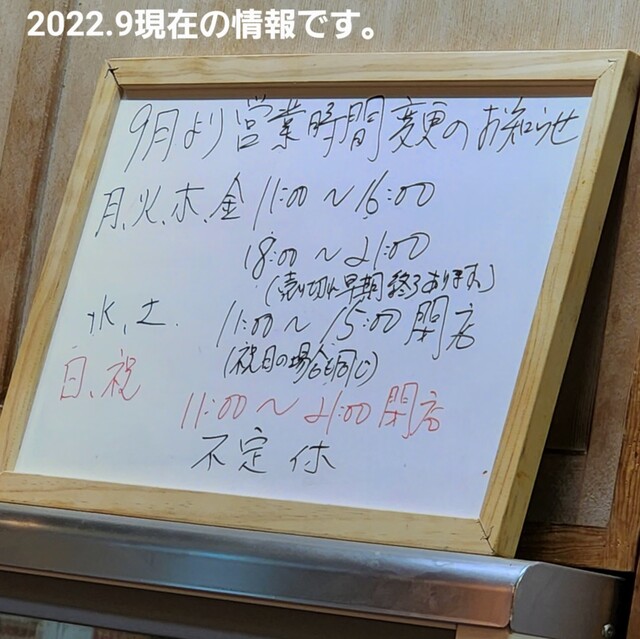 2022.9現在の情報です。
9月より営業時間変更のお知らせ
月、火、木、金 11:00〜16:00
18:00〜21:00
(売り切れ早期終了あります)
水、土. 11:00〜15:00閉店
(祝日の場合も同じ)
日、祝
11:00〜21:00閉店
不定休